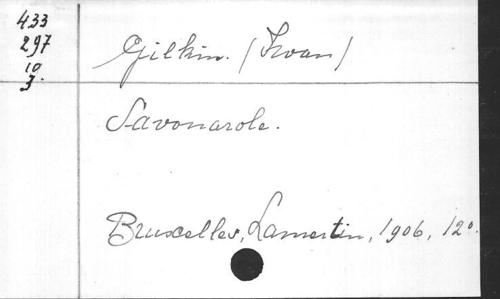 433
297
10
3.
Gilkin. (Iwan)
Savonarole.
Bruxelles, Lamertin, 1906, 12º.